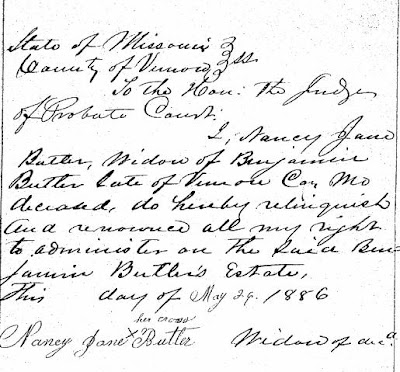 State of Missouri }
County of Vernon } ss
To the Hon: the Judge
of Probate Court:
I, Nancy Jane
Butler, Widow of Benjamin
Butler late of Vernon Co, Mo
deceased, do hereby relinquish
and renounced all my right
to administer on the said Ben-
jamin Butler's Estate,
This day of May 29. 1886
her cross
Nancy Jane x Butler Widow of dec'd.